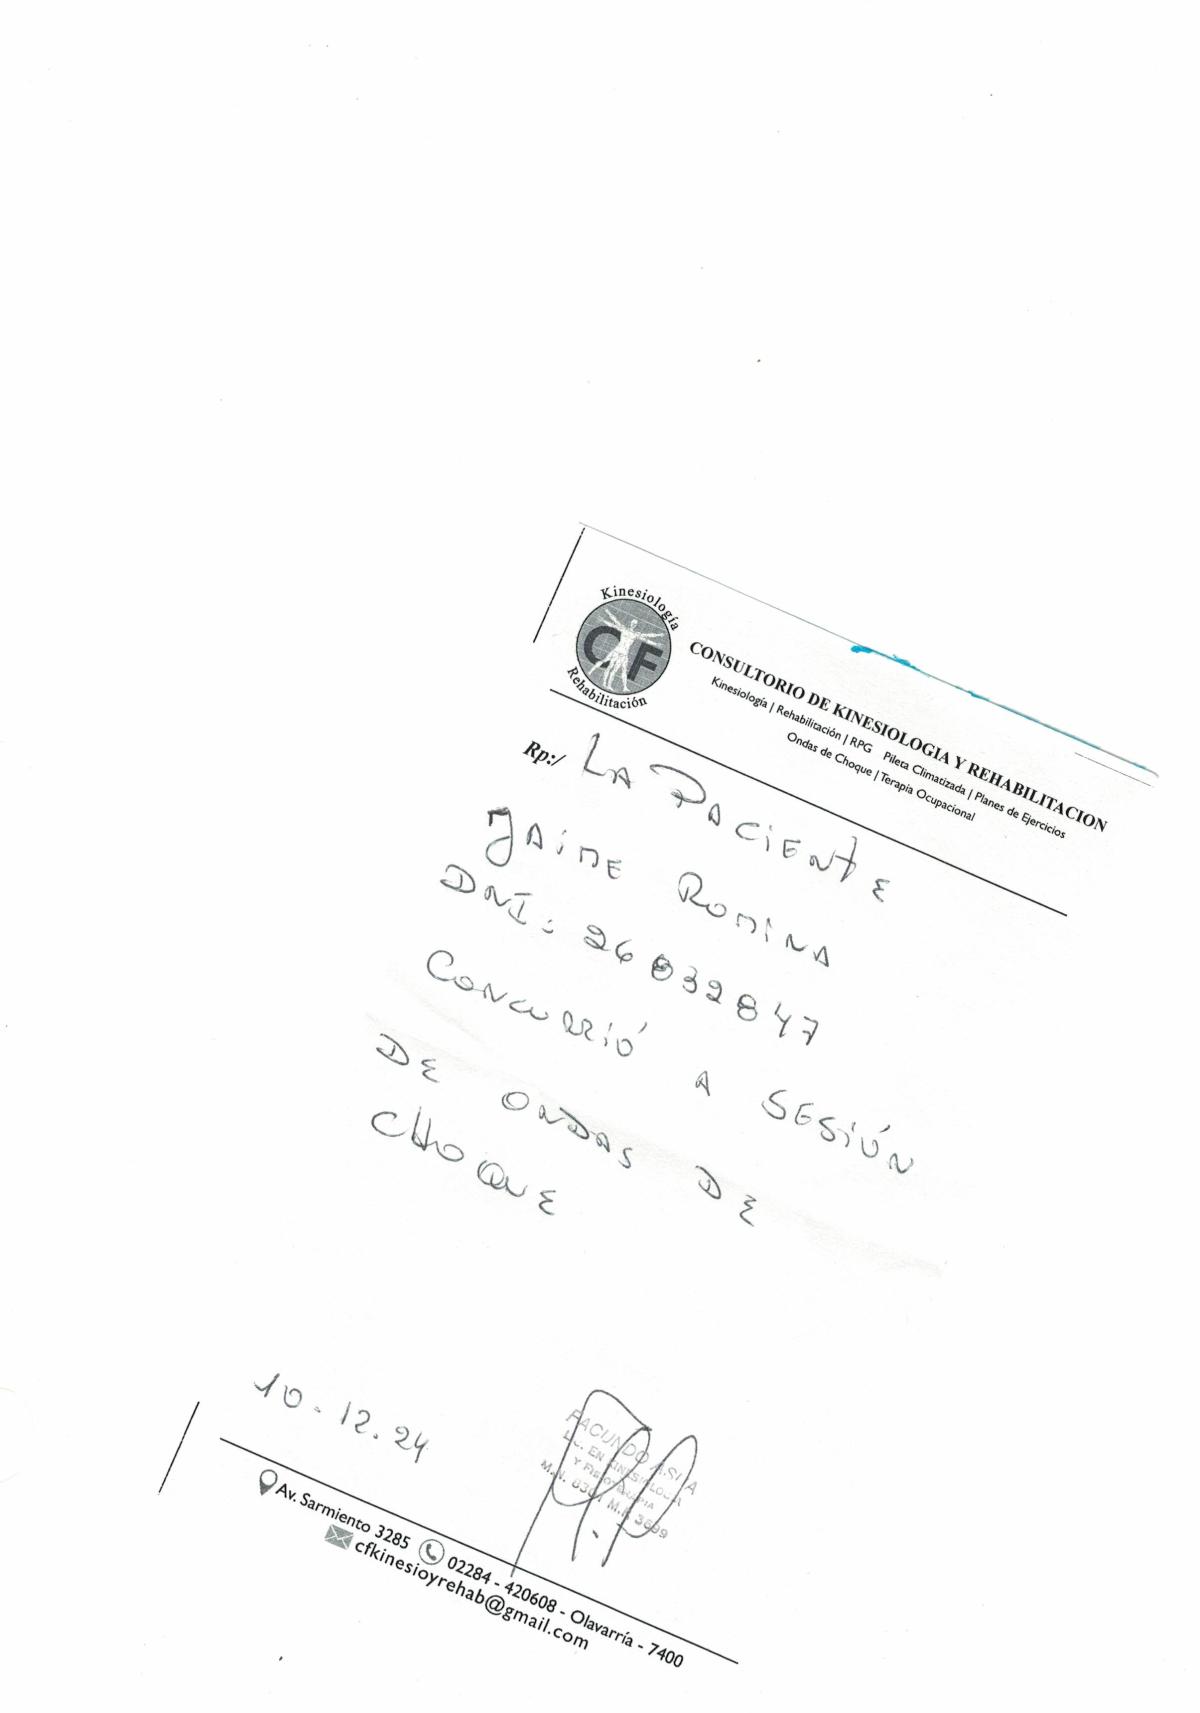 Kinesiología
CF
Rehabilitación
CONSULTORIO DE KINESIOLOGIA Y REHABILITACION
Kinesiología | Rehabilitación | RPG Pileta Climatizada | Planes de Ejercicios
Ondas de Choque | Terapia Ocupacional
Rp:/ LA PACIENTE
JAIME ROMINA
DNI: 26832847
CONCURRIÓ A SESIÓN
DE ONDAS DE
CHOQUE
10-12.24
FACUNDO
LIC. EN KINESIOLOGIA
Y FISIOTERAPIA
M.N. M.P. 3699
Av. Sarmiento 3285 02284 - 420608 - Olavarría - 7400
cfkinesioyrehab@gmail.com